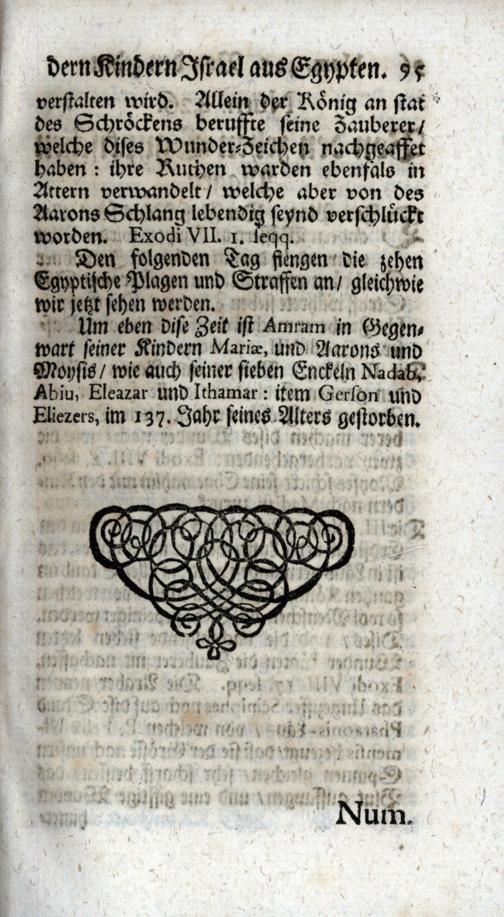 dern Kindern Israel aus Egypten. 95
verstalten wird. Allein der König an stat
des Schröckens beruffte seine Zauberer/
welche dises Wunder-Zeichen nachgeaffet
haben : ihre Ruthen warden ebenfals in
Attern verwandelt / welche aber von des
Aarons Schlang lebendig seynd verschlückt
worden. Exodi VII. 1. seqq.
Den folgenden Tag fiengen die zehen
Egyptische Plagen und Straffen an/ gleichwie
wir jetzt sehen werden.
Um eben dise Zeit ist Amram in Gegen-
wart seiner Kindern Mariæ, und Aarons und
Moysis/ wie auch seiner sieben Enckeln Nadab,
Abiu, Eleazar und Ithamar : item Gerson und
Eliezers, im 137. Jahr seines Alters gestorben.
Num.